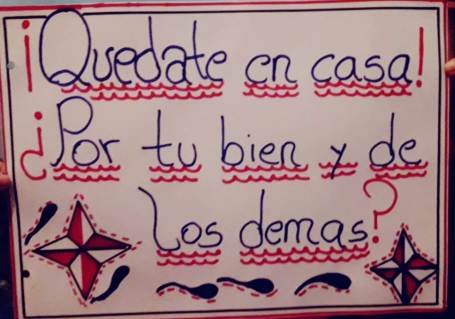 ¡Quedate en casa!
¿Por tu bien y de
los demas?